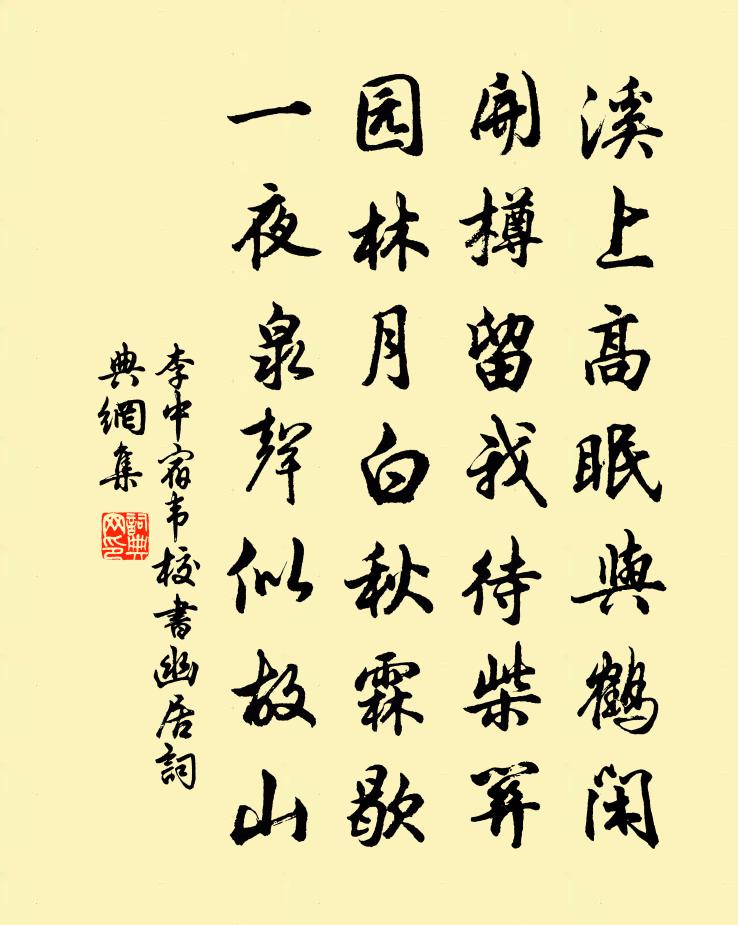 溪上高眠與鶴閑
開樽留我待柴關
园林月白秋霖歇
一夜泉聲似故山
李中宿韦校書幽居詞
典網集
詞典
网印